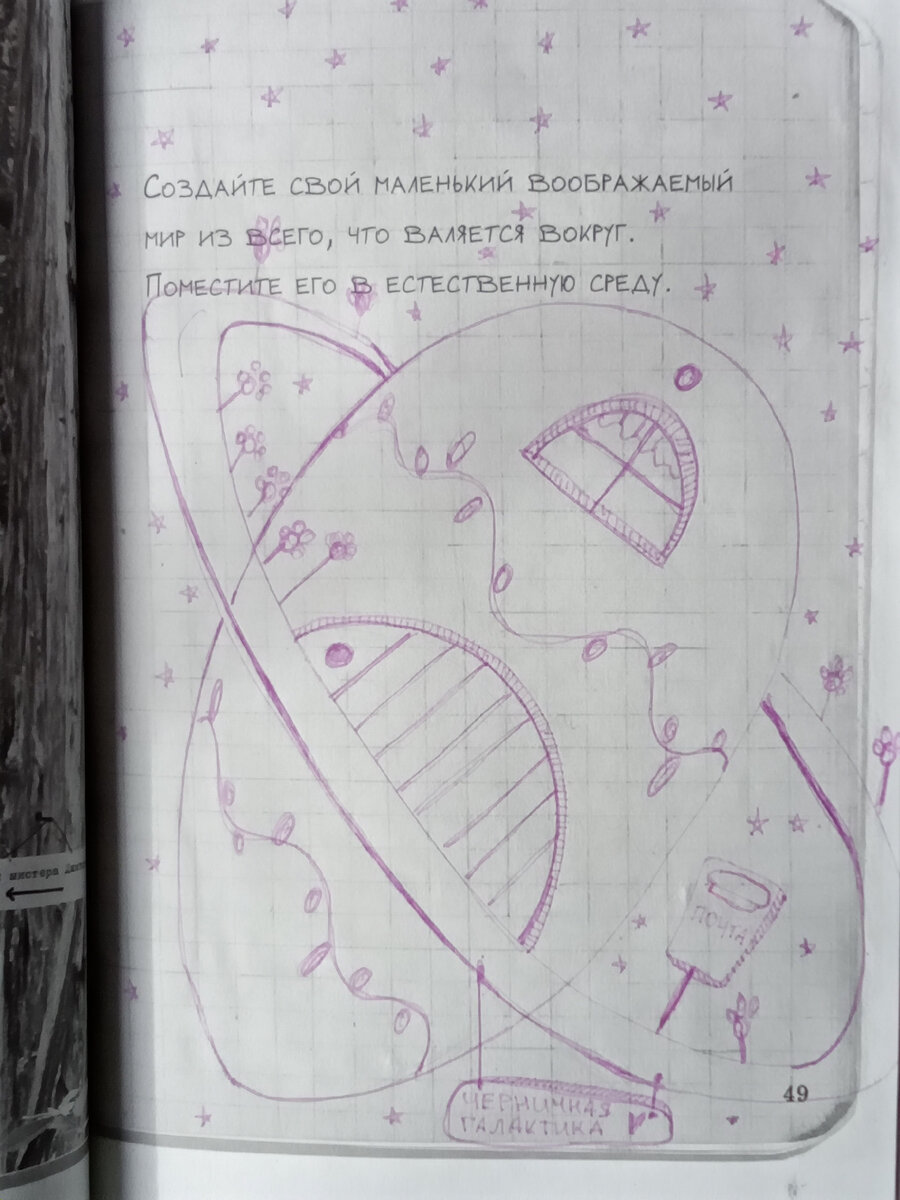 СОЗДАЙТЕ СВОЙ МАЛЕНЬКИЙ ВООБРАЖАЕМЫЙ
МИР ИЗ ВСЕГО, ЧТО ВАЛЯЕТСЯ ВОКРУГ.
ПОМЕСТИТЕ ЕГО В ЕСТЕСТВЕННУЮ СРЕДУ.
мистера
ПОЧТА
49
ЧЕРНИЧНАЯ
ГАЛАКТИКА